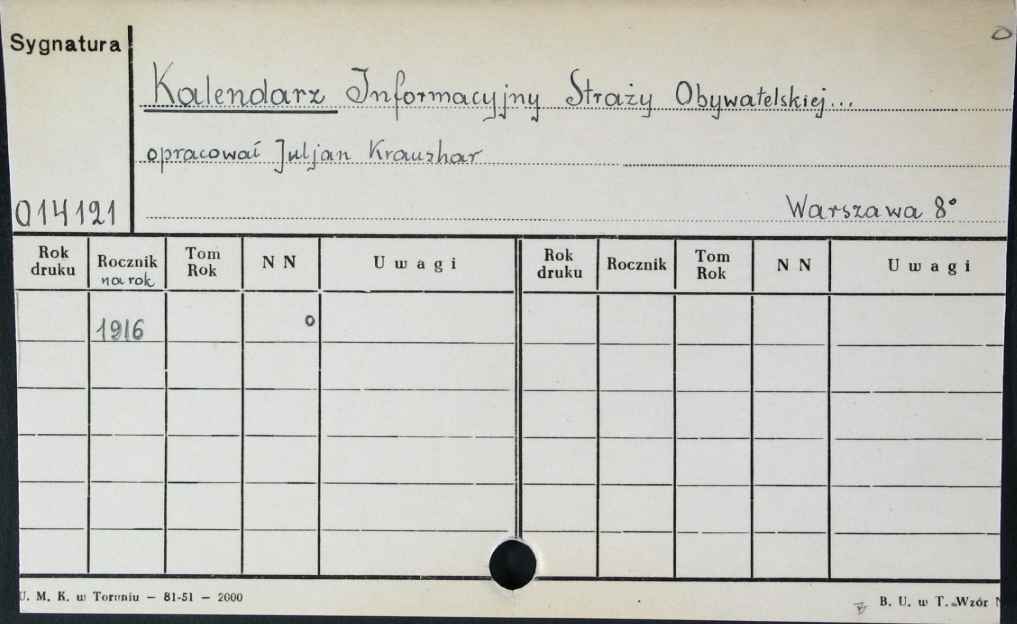 Sygnatura
O
Kalendarz Informacyjny Straży Obywatelskiej...
opracował Juljan Krauzhar
014121
Warszawa 8°
Rok druku Rocznik na rok Tom Rok N N Uwagi Rok druku Rocznik Tom Rok N N Uwagi
1916 o
U. M. K. w Toruniu — 81-51 — 2000
B. U. w T. Wzór